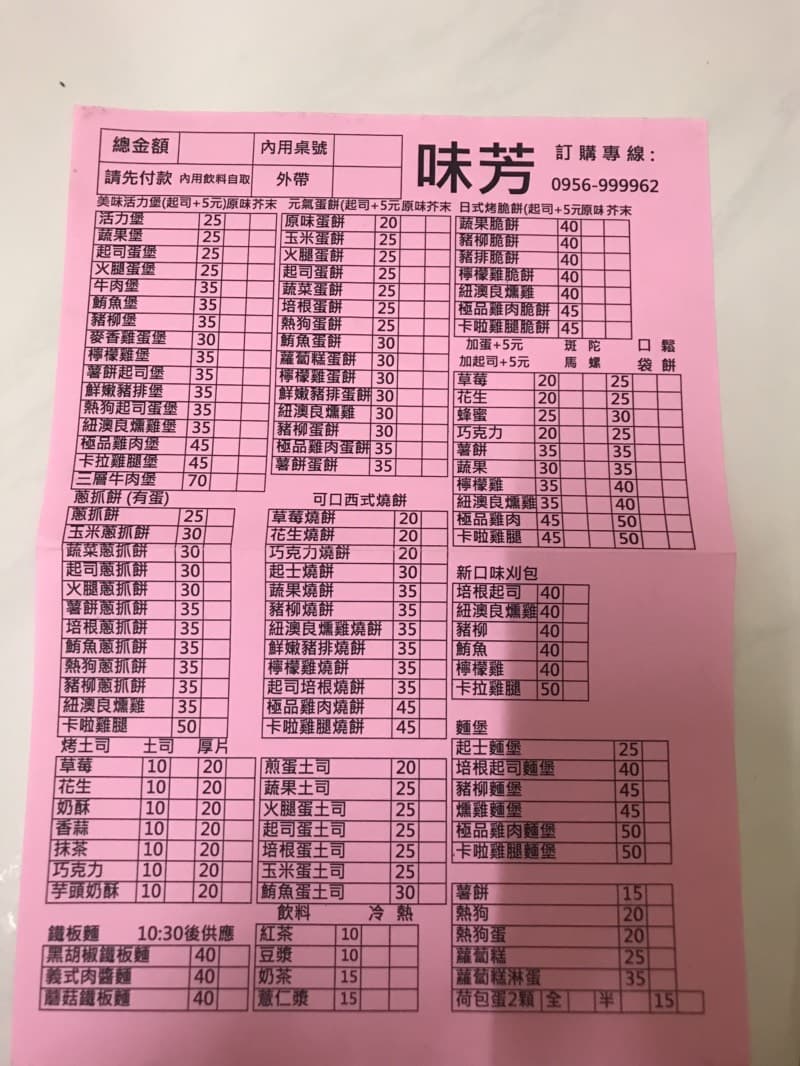 總金額 內用桌號
請先付款 內用飲料自取 外帶
味芳
訂購專線:
0956-999962
美味活力堡(起司+5元)原味芥末
活力堡 25
蔬果堡 25
起司蛋堡 25
火腿蛋堡 25
牛肉堡 35
鮪魚堡 35
豬柳堡 35
麥香雞蛋堡 30
檸檬雞堡 35
薯餅起司堡 35
鮮嫩豬排堡 35
熱狗起司蛋堡 35
紐澳良燻雞堡 35
極品雞肉堡 45
卡拉雞腿堡 45
三層牛肉堡 70
元氣蛋餅(起司+5元原味芥末
原味蛋餅 20
玉米蛋餅 25
火腿蛋餅 25
起司蛋餅 25
蔬菜蛋餅 25
培根蛋餅 25
熱狗蛋餅 25
鮪魚蛋餅 30
蘿蔔糕蛋餅 30
檸檬雞蛋餅 30
鮮嫩豬排蛋餅 30
紐澳良燻雞 30
豬柳蛋餅 30
極品雞肉蛋餅 35
薯餅蛋餅 35
日式烤脆餅(起司+5元原味芥末
蔬果脆餅 40
豬柳脆餅 40
豬排脆餅 40
檸檬雞脆餅 40
紐澳良燻雞 40
極品雞肉脆餅 45
卡啦雞腿脆餅 45
加蛋+5元 斑 陀 口 鬆
加起司+5元 馬 螺 袋 餅
草莓 20 25
花生 20 25
蜂蜜 25 30
巧克力 20 25
薯餅 35 35
蔬果 30 35
檸檬雞 35 40
紐澳良燻雞 35 40
極品雞肉 45 50
卡啦雞腿 45 50
蔥抓餅 (有蛋)
蔥抓餅 25
玉米蔥抓餅 30
蔬菜蔥抓餅 30
起司蔥抓餅 30
火腿蔥抓餅 30
薯餅蔥抓餅 35
培根蔥抓餅 35
鮪魚蔥抓餅 35
熱狗蔥抓餅 35
豬柳蔥抓餅 35
紐澳良燻雞 35
卡啦雞腿 50
可口西式燒餅
草莓燒餅 20
花生燒餅 20
巧克力燒餅 20
起士燒餅 30
蔬果燒餅 35
豬柳燒餅 35
紐澳良燻雞燒餅 35
鮮嫩豬排燒餅 35
檸檬雞燒餅 35
起司培根燒餅 35
極品雞肉燒餅 45
卡啦雞腿燒餅 45
新口味刈包
培根起司 40
紐澳良燻雞 40
豬柳 40
鮪魚 40
檸檬雞 40
卡拉雞腿 50
麵堡
起士麵堡 25
培根起司麵堡 40
豬柳麵堡 45
燻雞麵堡 45
極品雞肉麵堡 50
卡啦雞腿麵堡 50
烤土司 土司 厚片
草莓 10 20
花生 10 20
奶酥 10 20
香蒜 10 20
抹茶 10 20
巧克力 10 20
芋頭奶酥 10 20
煎蛋土司 20
蔬果土司 25
火腿蛋土司 25
起司蛋土司 25
培根蛋土司 25
玉米蛋土司 25
鮪魚蛋土司 30
薯餅 15
熱狗 20
熱狗蛋 20
蘿蔔糕 25
蘿蔔糕淋蛋 35
荷包蛋2顆 全 半 15
鐵板麵 10:30後供應
黑胡椒鐵板麵 40
義式肉醬麵 40
蘑菇鐵板麵 40
飲料 冷 熱
紅茶 10
豆漿 10
奶茶 15
薏仁漿 15